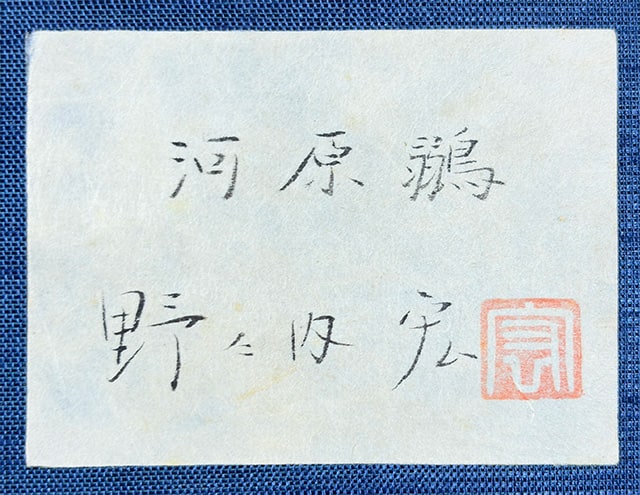 河原鶸
野々内宏
宏